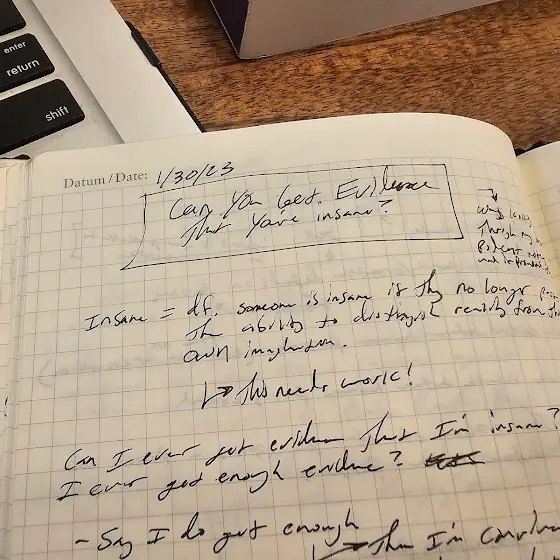 enter
return
shift
Datum / Date: 1/30/23
Can You Get Evidence
That You're insane?
Through my
Insane = df. someone is insane if they no longer
the ability to distinguish reality from their
own imagination.
↳ This needs work!
Can I ever get evidence That I'm insane?
I ever get enough evidence?
- Say I do get enough
↳ Then I'm